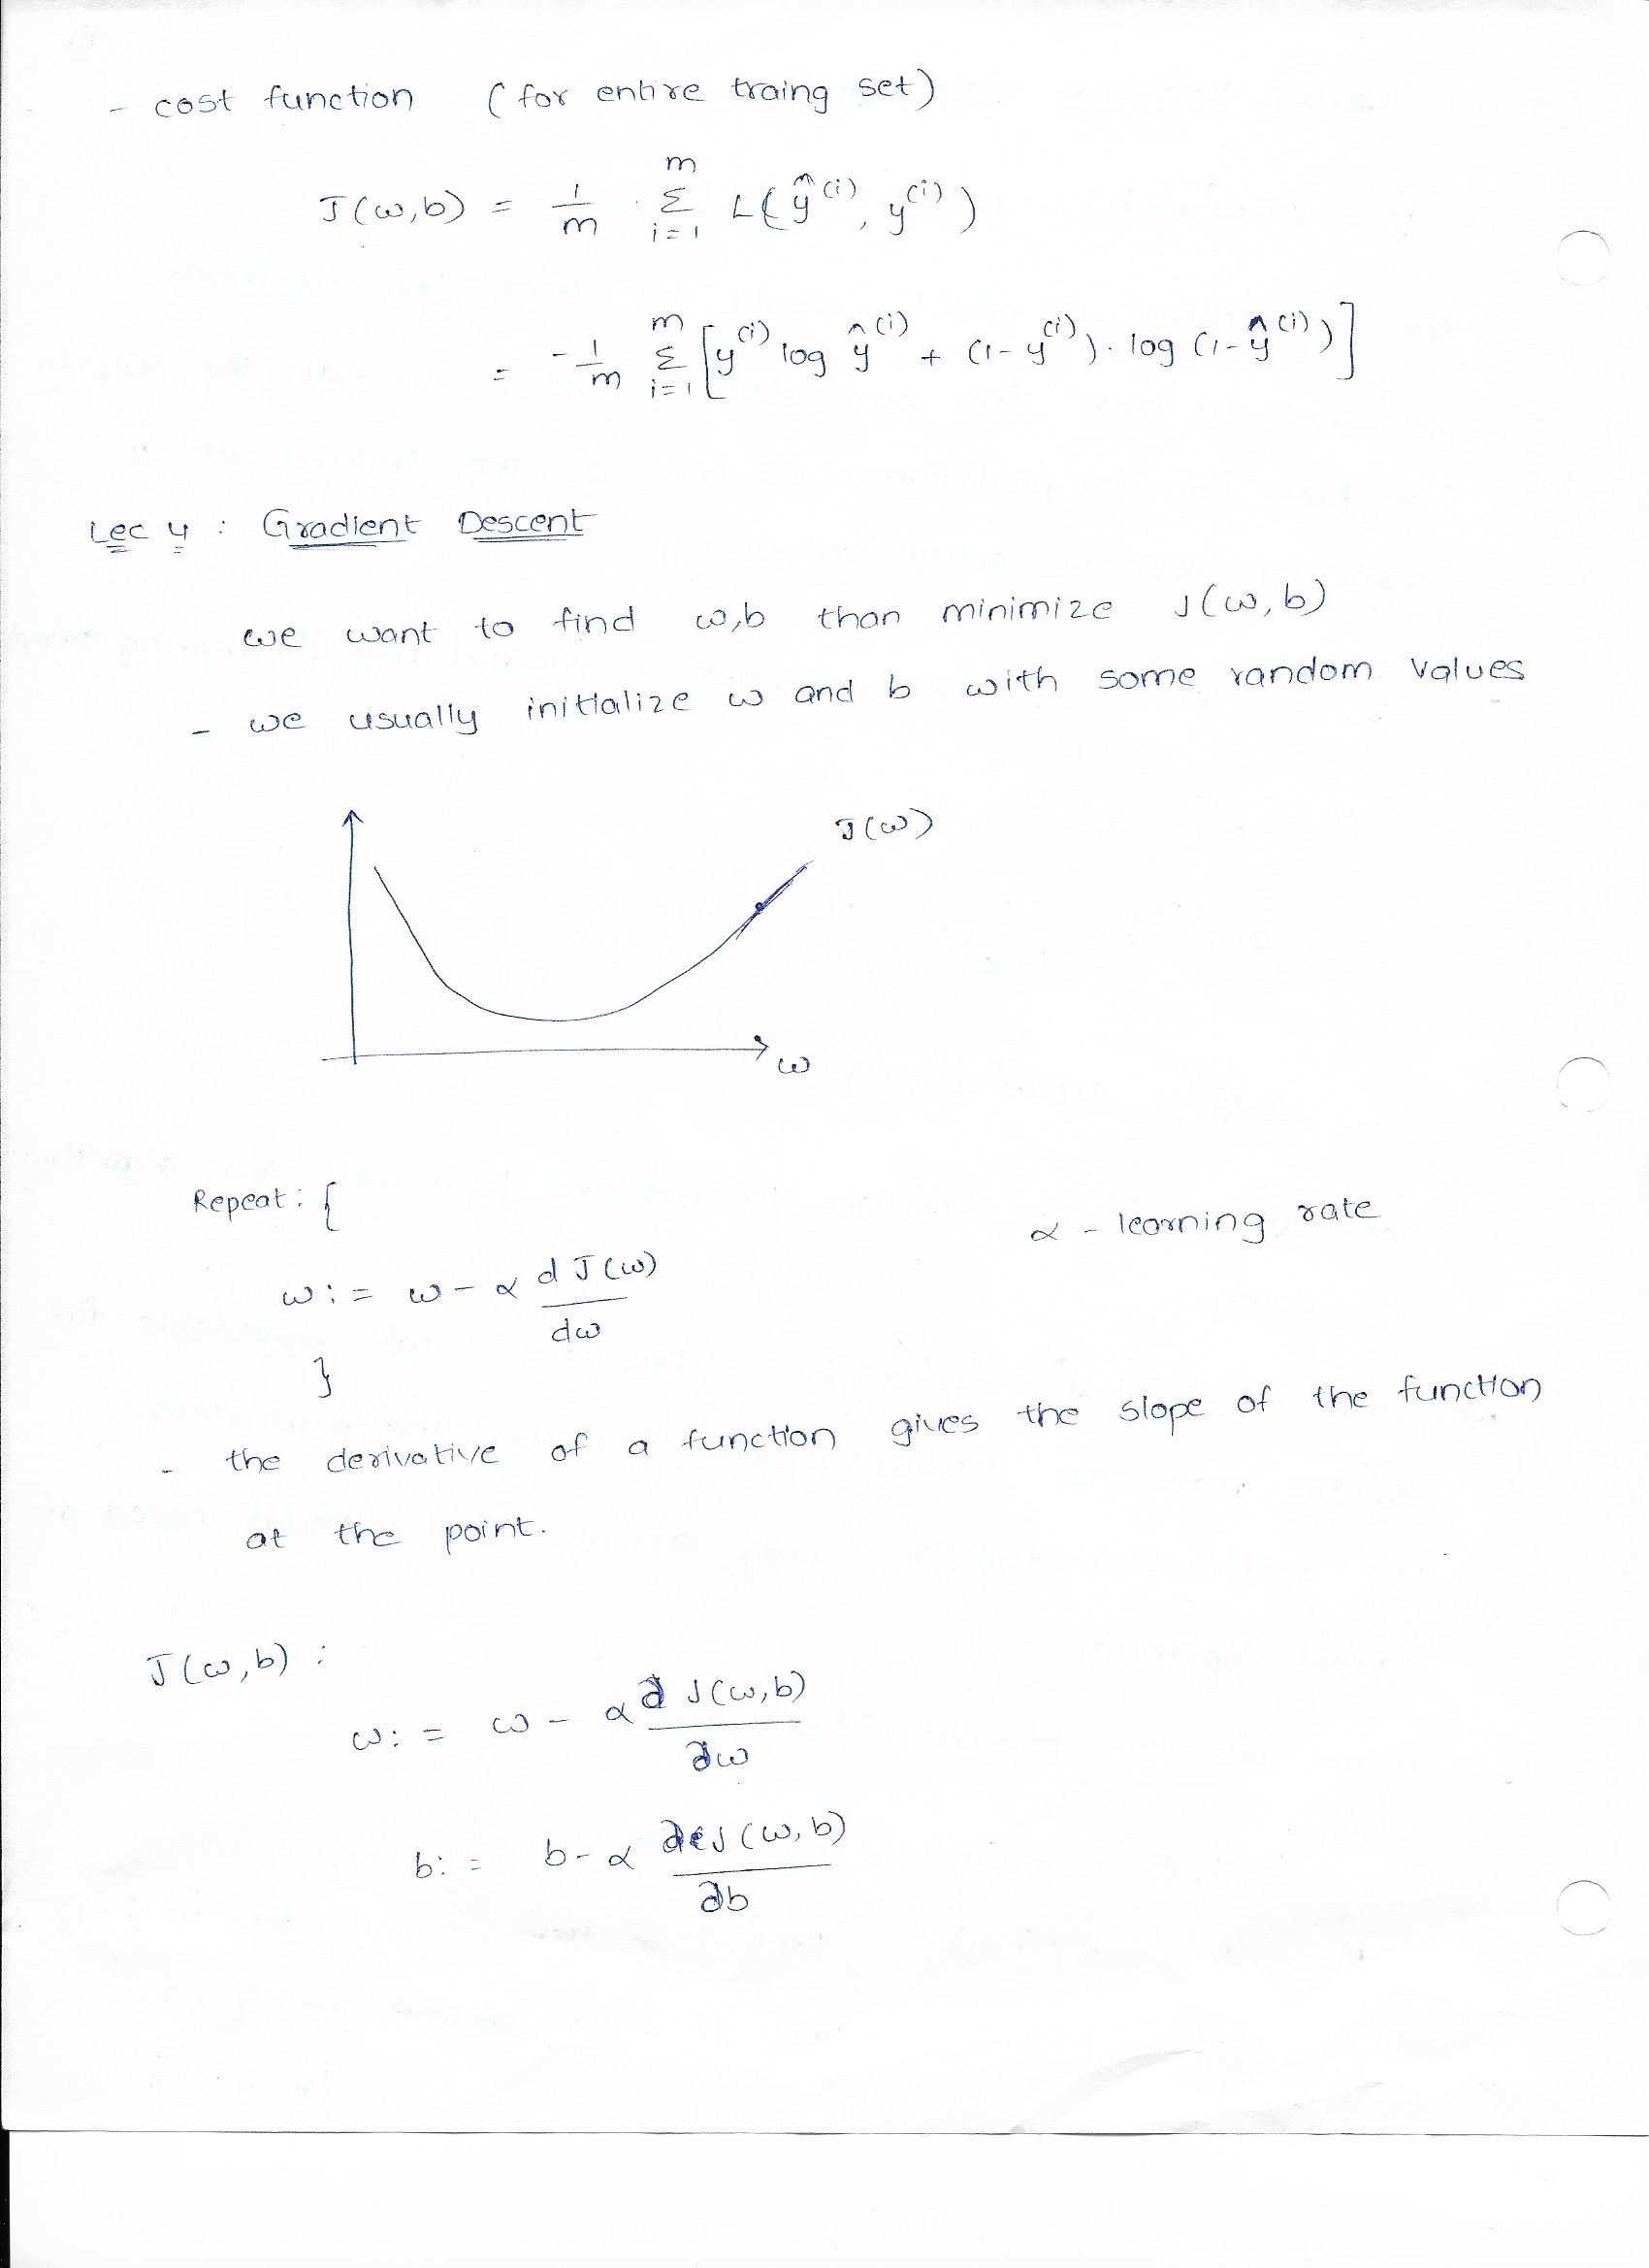 - cost function (for entire traing set)
J(ω,b) = 1/m . Σ_{i=1}^{m} L(ŷ^(i), y^(i))
= -1/m Σ_{i=1}^{m} [y^(i) log ŷ^(i) + (1-y^(i)). log (1-ŷ^(i))]
Lec 4 : Gradient Descent
we want to find ω,b than minimize J(ω,b)
- we usually initialize ω and b with some random values
J(ω)
ω
Repeat: {
α - learning rate
ω := ω - α dJ(ω)/dω
}
- the derivative of a function gives the slope of the function
at the point.
J(ω,b) :
ω := ω - α ∂J(ω,b)/∂ω
b := b - α ∂J(ω,b)/∂b